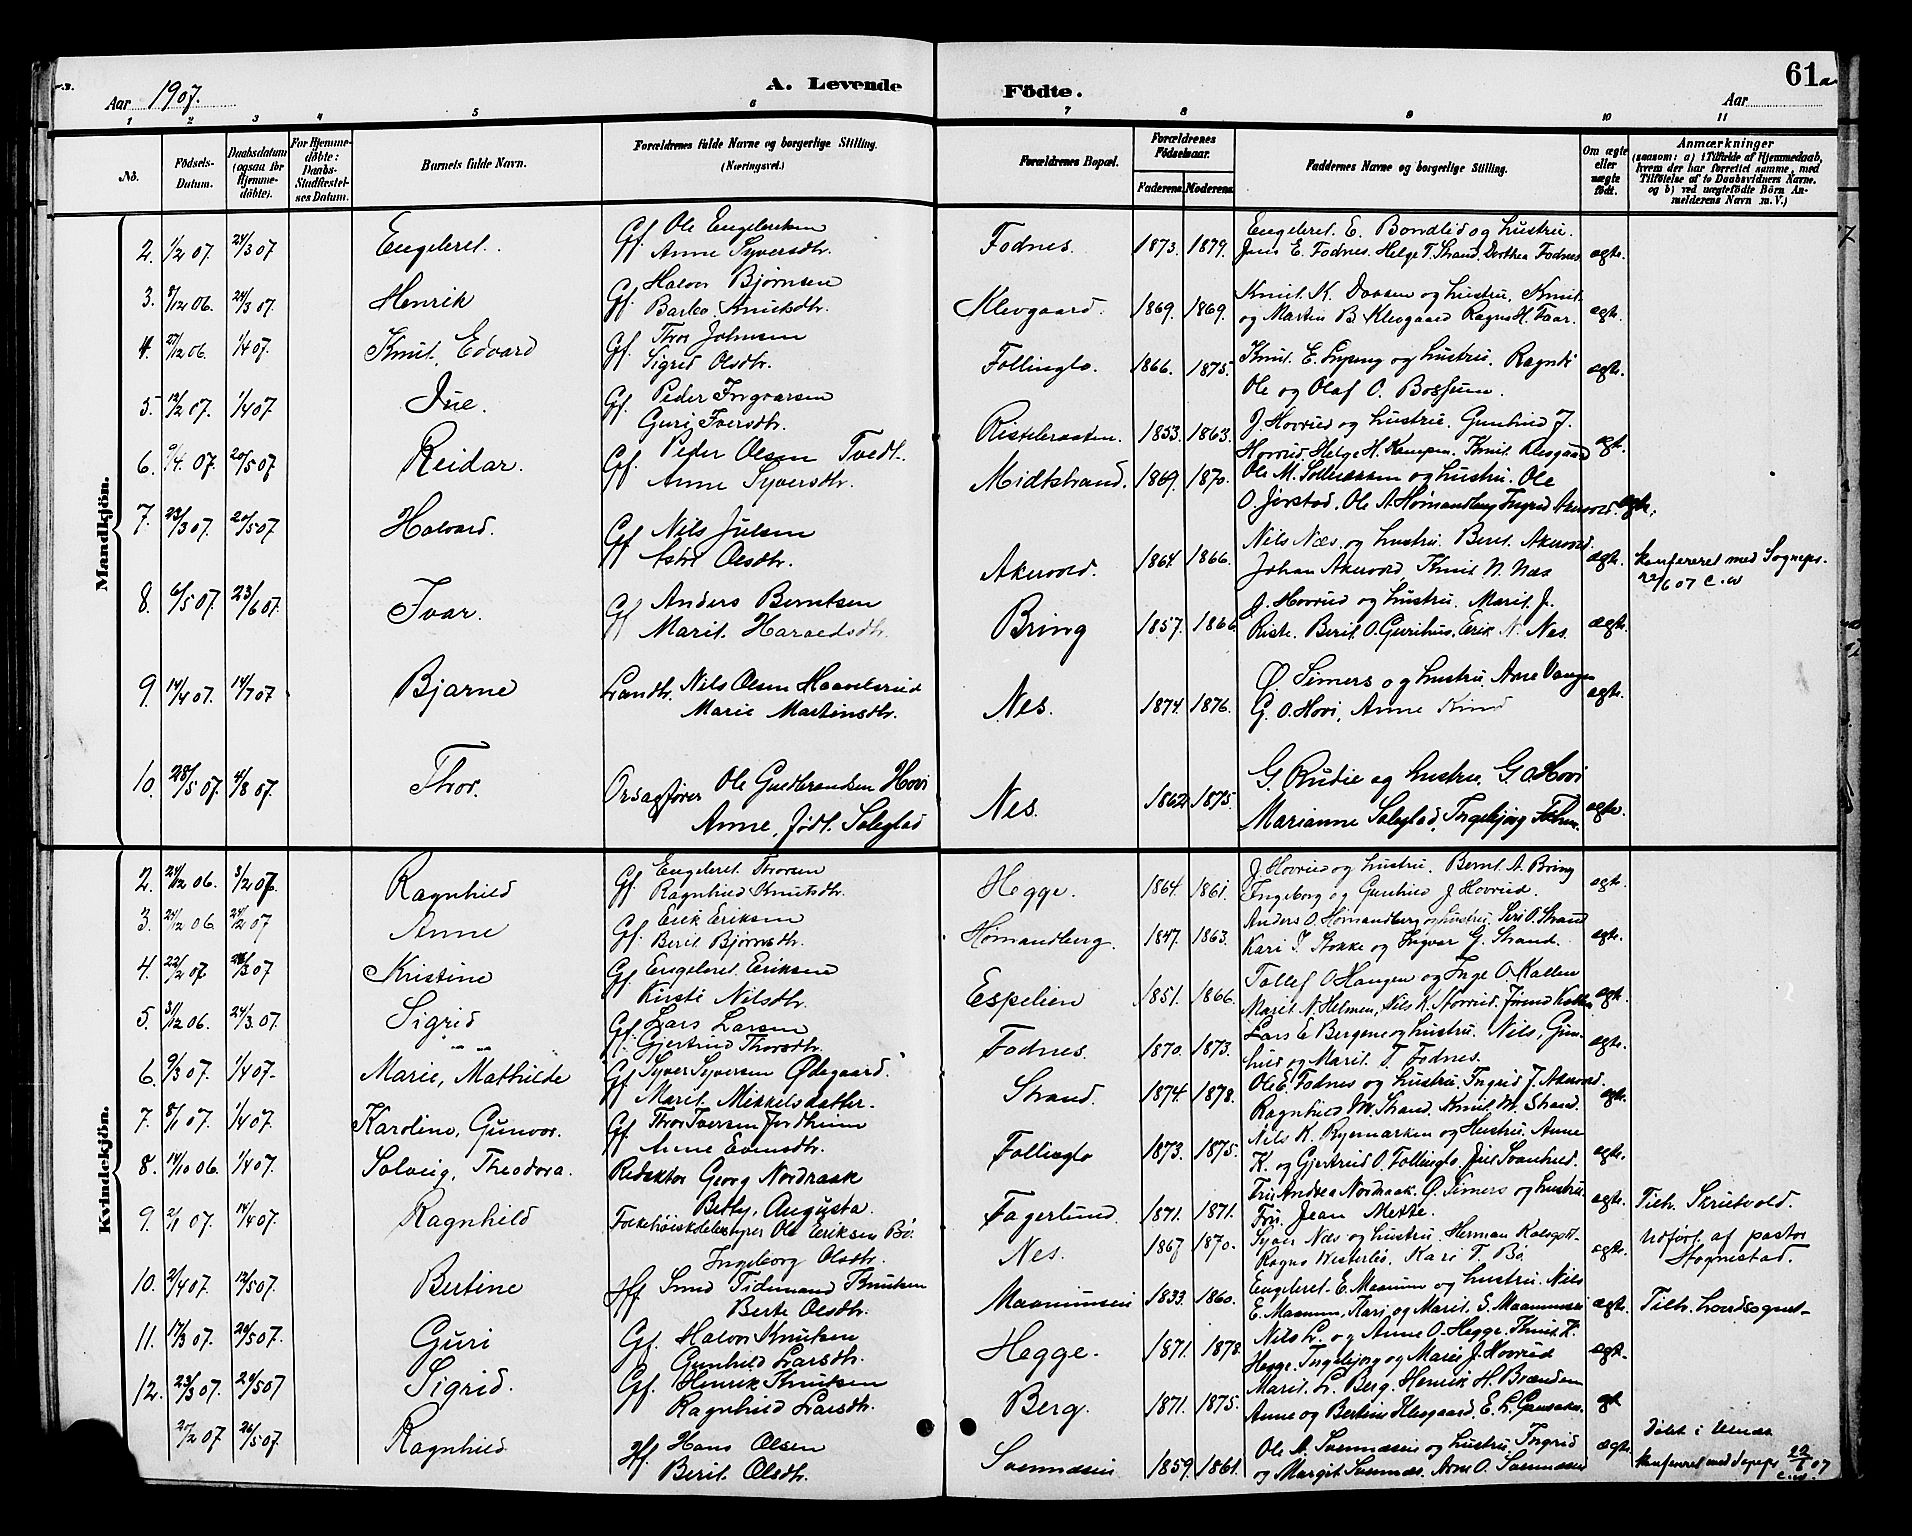 Aar 1907.
A. Levende
Fødte.
61a
Aar
1 2 3 4 5 6 7 8 9 10 11
No.
Fødsels-Datum.
Daabsdatum (ogsaa for Hjemmedøbte).
For Hjemmedøbte: Daabs-Stadfæstelses Datum.
Barnets fulde Navn.
Forældrenes fulde Navne og borgerlige Stilling. (Næringsvei.)
Forældrenes Bopæl.
Forældrenes Fødselsaar.
Faderens. Moderens.
Faddernes Navne og borgerlige Stilling.
Om ægte eller uægte født.
Anmærkninger (saasom: a) i Tilfælde af Hjemmedaab, hvem der har forrettet samme, med Tilføielse af to Daabsvidners Navne, og b) ved uægtefødte Børn Anmelderens Navn m. V.)
Mandkjøn.
2. 1/2 07. 24/3 07 Engebret. Gf. Ole Engebretsen Fodnes. 1873. 1879. Engebret. E. Bondlid og hustru.
Anne Syversdtr. Jens E. Fodnes. Helge T. Strand. Dorthea Fodnes ægte.
3. 8/12 06. 24/3 07. Henrik Gf. Halvor Bjørnsen Klevgaard. 1869. 1869. Knut. K. Dossen og hustru, Knut
Barbo. Knutsdtr. og Martin B. Klevgaard Ragna H. Faar. ægt.
4. 27/12 06. 1/4 07. Knut, Edvard Gf. Thor Johnsen Follinglo. 1866. 1875. Knut. E. og hustru. Ragndi
Sigrid Olsdtr. Ole og Olaf O. ægte.
5. 12/2 07. 1/4 07. Gf. Peder Ingvarsen Ristebraaten. 1853. 1863. J. Hovrud og hustru. Gunhild J.
Guri Iversdtr. Hovrud, Helge H. Kampen. Knut. Klevgaard ægt.
6. 9/4. 07. 20/5 07 Reidar. Gf. Peder Olsen Tvedt. Midtstrand. 1869. 1870. Ole M. og hustru. Ole
Anne Syversdtr. O. Jørstad, Ole A. Hømandberg Ingrid ægte.
7. 23/3 07. 20/5 07 Halvard. Gf Nils Julsen Akervold. 1864. 1866. Nils Næs. og hustru. Berit. Akervold.
Astri Olsdtr. Johan Akervold. Knut N. Næs ægte. konfereret med Sogneps. 22/6 07 C.W
8. 6/5 07. 23/6 07. Ivar. Gf Anders Berntsen Bring 1857. 1866. J. Hovrud og hustru. Marit. J.
Marit. Haraldsdtr. Riste. Berit. O. Gurihus. Erik N. Nes. ægte.
9. 14/4 07. 14/7 07 Bjarne Landh. Nils Olsen Haavelsrud Nes. 1874. 1876. Ø. Simers og hustru. Arne Vangen
Marie Martinsdtr. G. O. Hovi, Anne ægte.
10. 28/5 07. 4/8 07. Thor. Ole Gudbrandsen Hovi Nes. 1862 1875. G. Rudie og hustru. G. O. Hovi
Anne, født. Soleglad Marianne Soleglad, Ingebjørg ægte
Kvindekjøn.
2. 24/12 06. 3/2 07. Ragnhild Gf. Engebret Thorsen Hegge. 1864. 1861. J. Hovrud og hustru. Bernt. A. Bring
Ragnhild Knutsdtr. Ingeborg og Gunhild J. Hovrud. ægt.
3. 24/12 06. 24/2 07 Anne Gf. Erik Eriksen Hømandberg. 1847. 1863. Anders O. Hømandberg og hustru, Siri O. Strand
Berit Bjørnsdtr. Kari T. Stokke og Ingvar G. Strand. ægte.
4. 22/2 07. 24/3 07 Kristine Gf. Engebret Eriksen Espelien 1851. 1866. Tollef O. Haugen og Inge O. Kollen
Kirsti Nilsdtr. Marit N. Helmen, Nils K. ægt.
5. 31/12 06. 24/3. 07. Sigrid Gf. Lars Larsen Fodnes. 1870. 1873. Lars E. Bergene og hustru. Nils, Gun-
Gjertrud Thorsdtr. hild og Marit. T. Fodnes. ægte.
6. 9/3 07. 1/4 07. Marie, Mathilde Gf Syver Syversen Ødegaard. Strand. 1874. 1878. Ole E. Fodnes og hustru. Ingrid J. Akervold.
Marit. Mikkelsdatter. Ragnhild M. Strand. Knut. M. Strand. ægte.
7. 8/1 07. 1/4 07. Karoline, Gunvor. Gf. Thor Iversen Jordheim Follinglo 1873. 1875. Nils K. Ryemarken og Hustru. Anne
Anne Evensdtr. K. og Gjertrud O. Follinglo. Svanhild. ægte.
8. 14/10 06. 1/4 07. Solveig, Theodora. Redaktør Georg Nordraak Fagerlund. 1871. 1871. Fru Andrea Nordraak. Ø. Simers og hustru.
Betty, Augusta. Fru. Jean Mette. ægte. Tilh. Skrutvold.
9. 2/1 07. 14/4 07. Ragnhild Folkehøiskolebestyrer Ole Eriksen Bø. Nes. 1867 1870. Syver Næs og hustru. Herman
Ingeborg Olsdtr. Ragna Westerbø. Kari T. Bø ægte. Udført af pastor Hognestad.
10. 2/4 07. 12/5 07. Bertine Hf. Smed Tidemand Knutsen 1833. 1860. Engebret. E. Maanum og hustru. Nils
Berte Olsdtr. E. Maanum, Kari og Marit. S. ægte. Tilh. hovedsognet
11. 17/3 07. 20/5 07. Guri Gf. Halvor Knutsen Hegge. 1871. 1878. Nils L. og Anne O. Hegge. Knut K.
Gunhild Larsdtr. Hegge. Ingebjørg og Marie J. Hovrud ægt.
12. 23/3 07. 20/5 07 Sigrid. Gf. Henrik Knutsen Berg. 1871. 1875. Marit. L. Berg. Henrik H. Brænden
Ragnhild Larsdtr. Anne og Bertine Klevgaard. E. L. ægt
20/2 07 26/5 07. Ragnhild. Hf. Hans Olsen Svennæseie 1859. 1861. Ole A. Svennæseie og hustru. Ingrid
Berit. Olsdtr. og Margit. Svennæs. Arne O. Svennæseie ægte. Døbt i Ulnæs konfereret med Sogneps. 22/6 07 C.W.